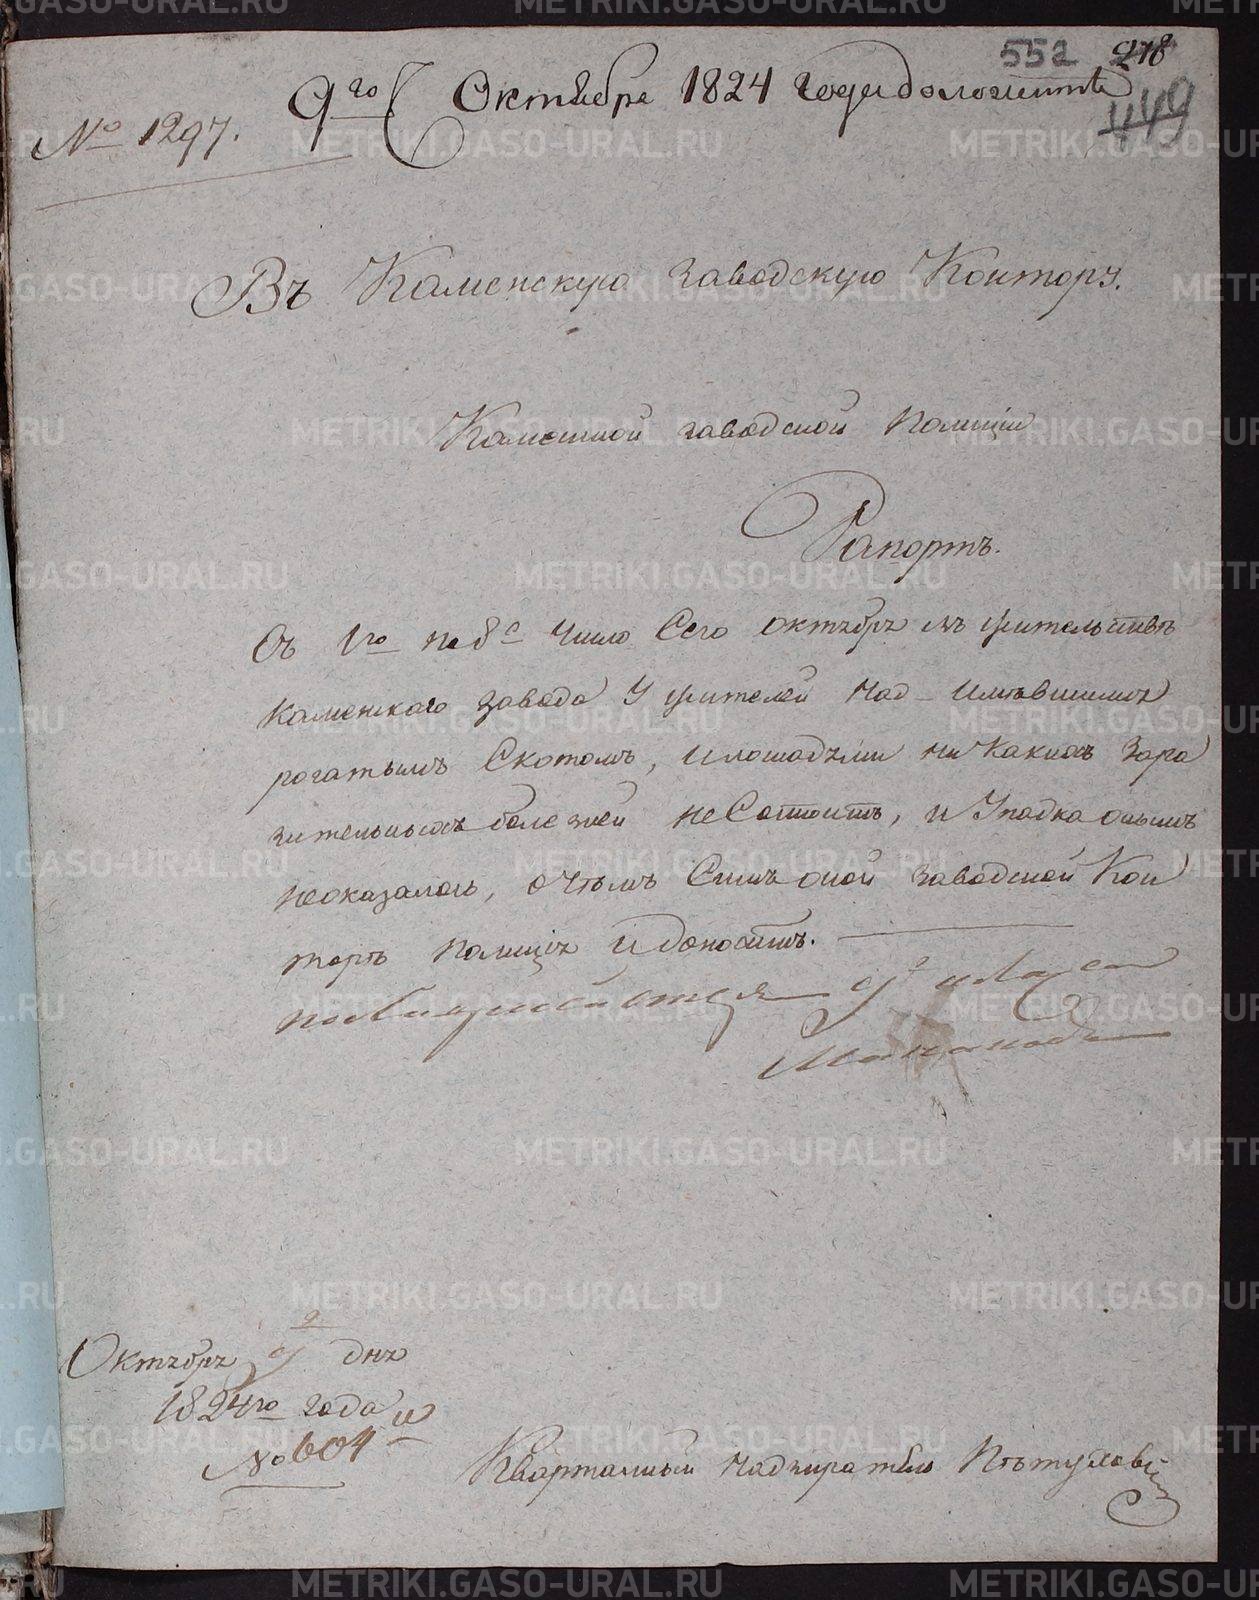 552 278
449
9го Октября 1824 года доложить
№ 1297.
Въ Каменскую заводскую Контору.
Каменной заводской Полиціи
Рапортъ.
Съ 1го по 8е число Сего октября въ жительстве
Каменского завода у жителей над имевшимъ
рогатымъ Скотомъ, и лошадьми ни каких зара
зительныхъ болезней не Состоитъ, и Упадка онымъ
неоказалось, о чемъ Симъ оной заводской Кон
торе Полиція и доноситъ.
Октября 9 дня
1824го года
№ 604й
Квартальный надзиратель
METRIKI.GASO-URAL.RU